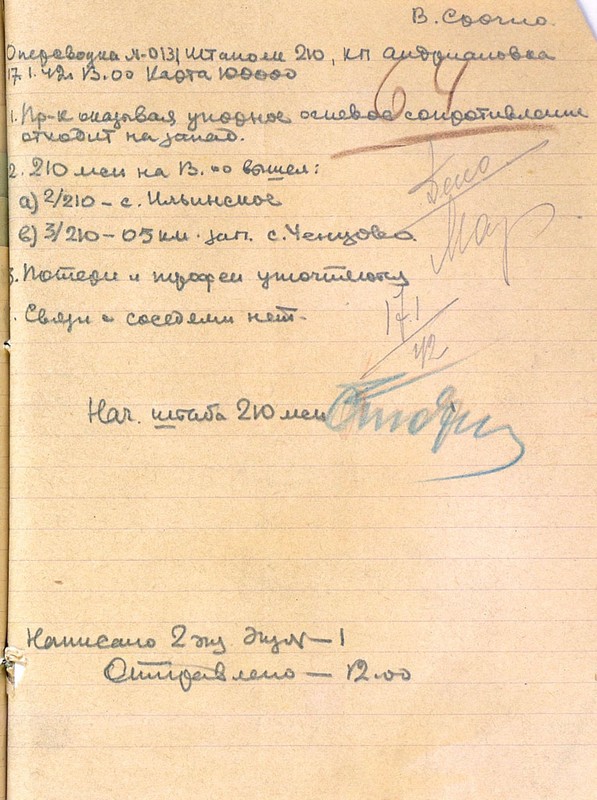 В. Срочно.
Оперсводка №-013, Штаполк 210, КП Андриановка
17.1.42г 12.00 Карта 100000
64
1. Пр-к оказывая упорное огневое сопротивление
отходит на запад.
2. 210 мсп на 12.00 вышел:
а) 2/210 – с. Ильинское
в) 3/210 – 05 км. зап. с. Ченцово.
3. Потери и трофеи уточняются
Связи с соседями нет.
17.1
42
Нач. штаба 210 мсп
Написано 2 экз экз №–1
Отправлено – 12.00